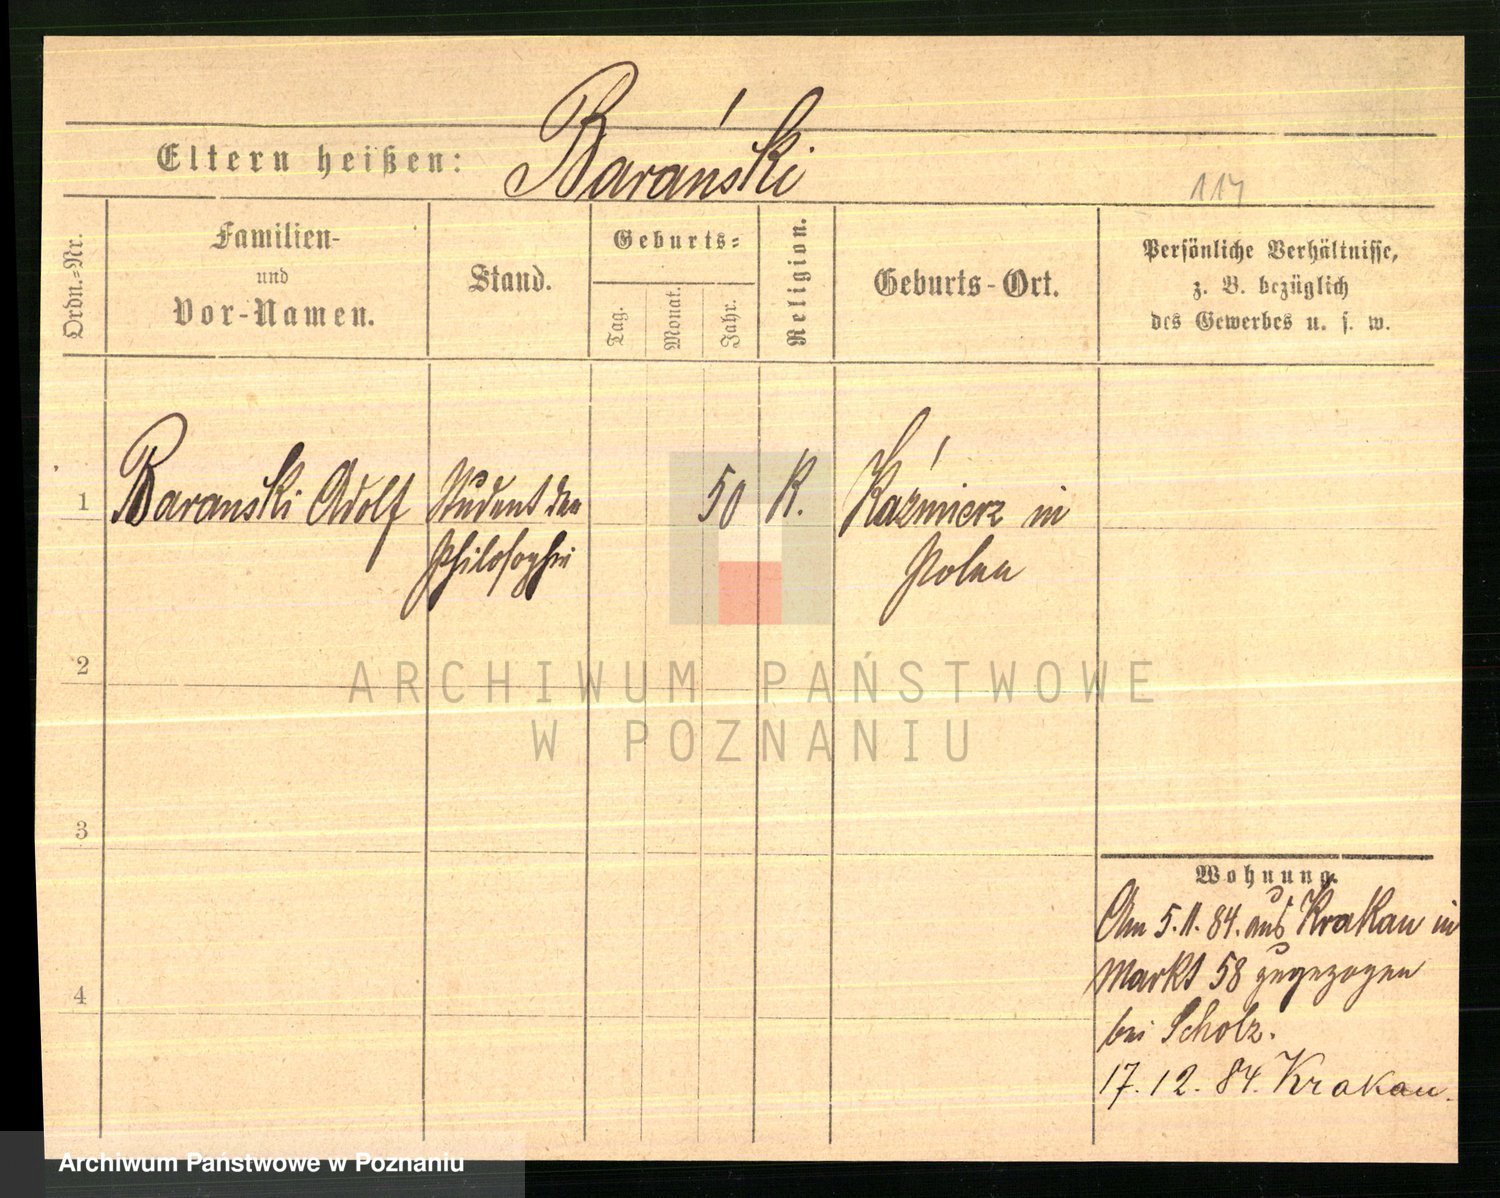 Barański
Eltern heißen:
114
Ordn.-Nr.
Familien-
und
Vor-Namen.
Stand.
Geburts-
Tag.
Monat.
Jahr.
Religion.
Geburts-Ort.
Persönliche Verhältnisse,
z. B. bezüglich
des Gewerbes u. s. w.
1
Baranski Adolf
Student der
Philosophie
50
K.
Kaźmierz in
Polen
2
ARCHIWUM PAŃSTWOWE
W POZNANIU
3
Wohnung.
Am 5.11.84. aus Krakau in
Markt 58 zugezogen
bei Scholz.
4
17.12.84. Krakau.
Archiwum Państwowe w Poznaniu